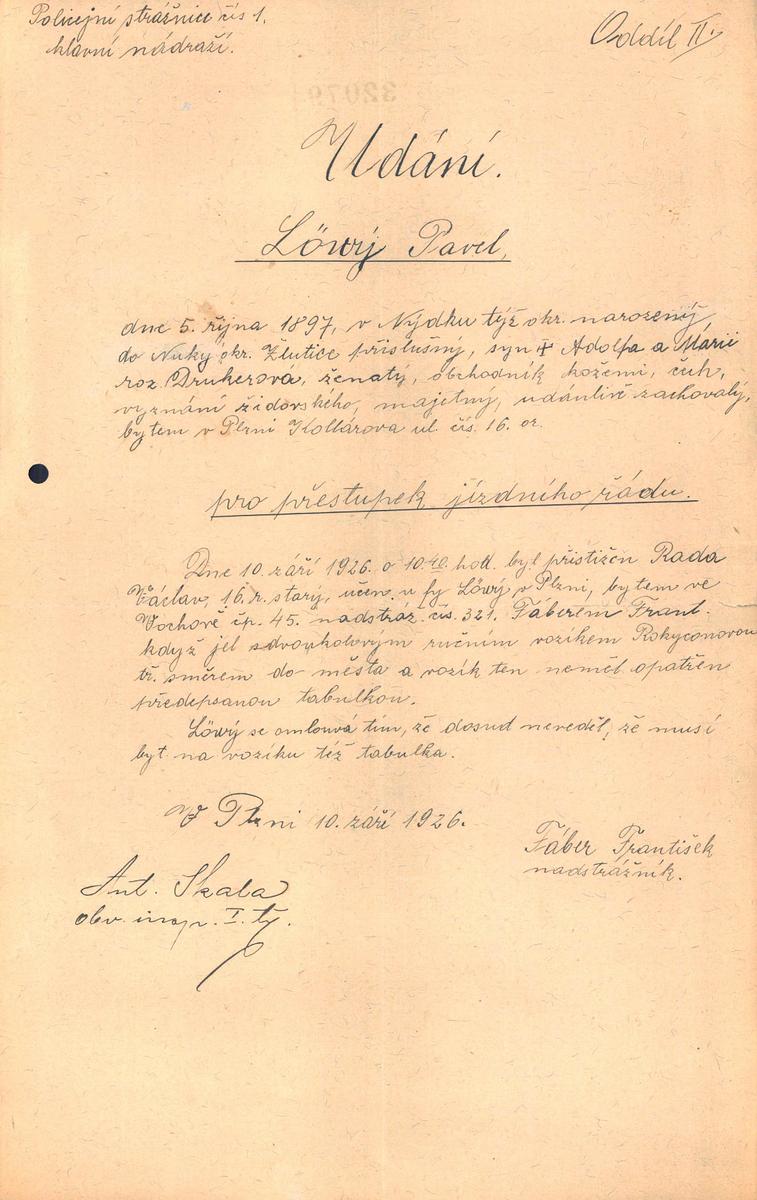 Policejní strážnice čís 1.
hlavní nádraží.
Oddíl II.
32079
Udání.
Löwý Pavel,
dne 5. října 1897, v Nýdku týž okr. narozený
do Nuky okr. Žlutice příslušný, syn ✝ Adolfa a Márii
roz. Drukerová, ženatý, obchodník kožemi, čech,
vyznání židovského, majetný, udánlivě zachovalý,
bytem v Plzni Kollárova ul. čís. 16. or.
pro přestupek jízdního řádu.
Dne 10. září 1926. o 10.40. hod. byl přistižen Rada
Václav, 16. r. starý, učen. u fy Löwý v Plzni, bytem ve
Vochově čp. 45. nadstráž. čís. 321. Fáberem Frant.
když jel dvoukolovým ručním vozíkem Rokyconovou
tř. směrem do města a vozík ten neměl opatřen
předepsanou tabulkou.
Löwý se omlouvá tím, že dosud nevěděl, že musí
být na vozíku též tabulka.
V Plzni 10. září 1926.
Fáber František
nadstrážník.
Ant. Skala
obv. insp. I. tř.